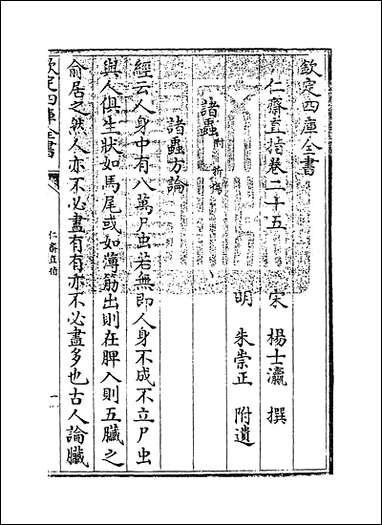 欽定四庫全書
仁齋直指卷二十五
宋 楊士瀛 撰
明 朱崇正 附遺
諸蟲附
諸蟲方論
經云人身中有八萬尸虫若無即人身不成不立尸虫
與人俱生狀如馬尾或如薄筋出則在脾入則五臟之
俞居之然人亦不必盡有有亦不必盡多也古人論臟
欽定四庫全書
仁齋直指
一